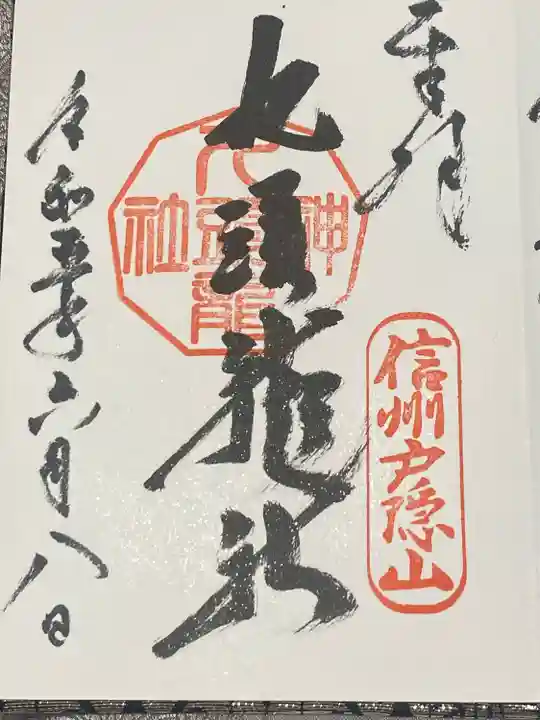 奉拝
信州戸隠山
九頭龍社
九頭龍
神
社
令和五年六月八日